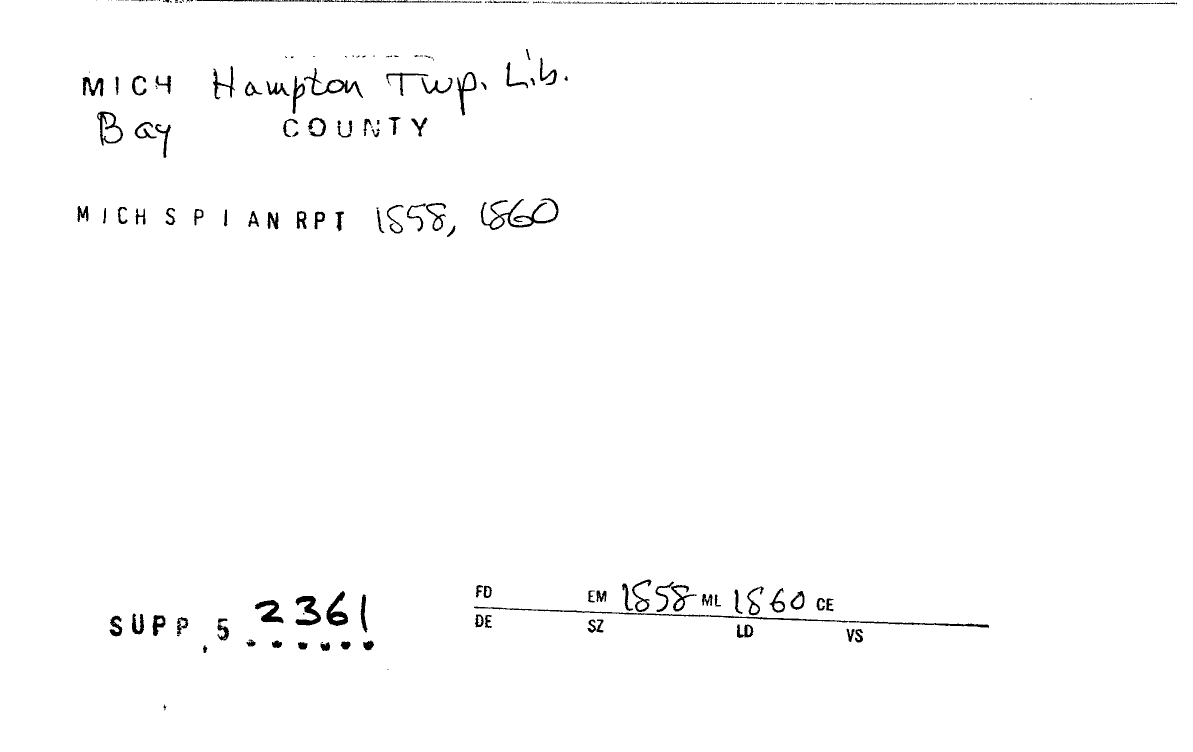 MICH Hampton Twp. Lib.
Bay COUNTY
MICH SPI AN RPT 1858, 1860
SUPP.5 2361
FD EM 1858 ML 1860 CE
DE SZ LD VS